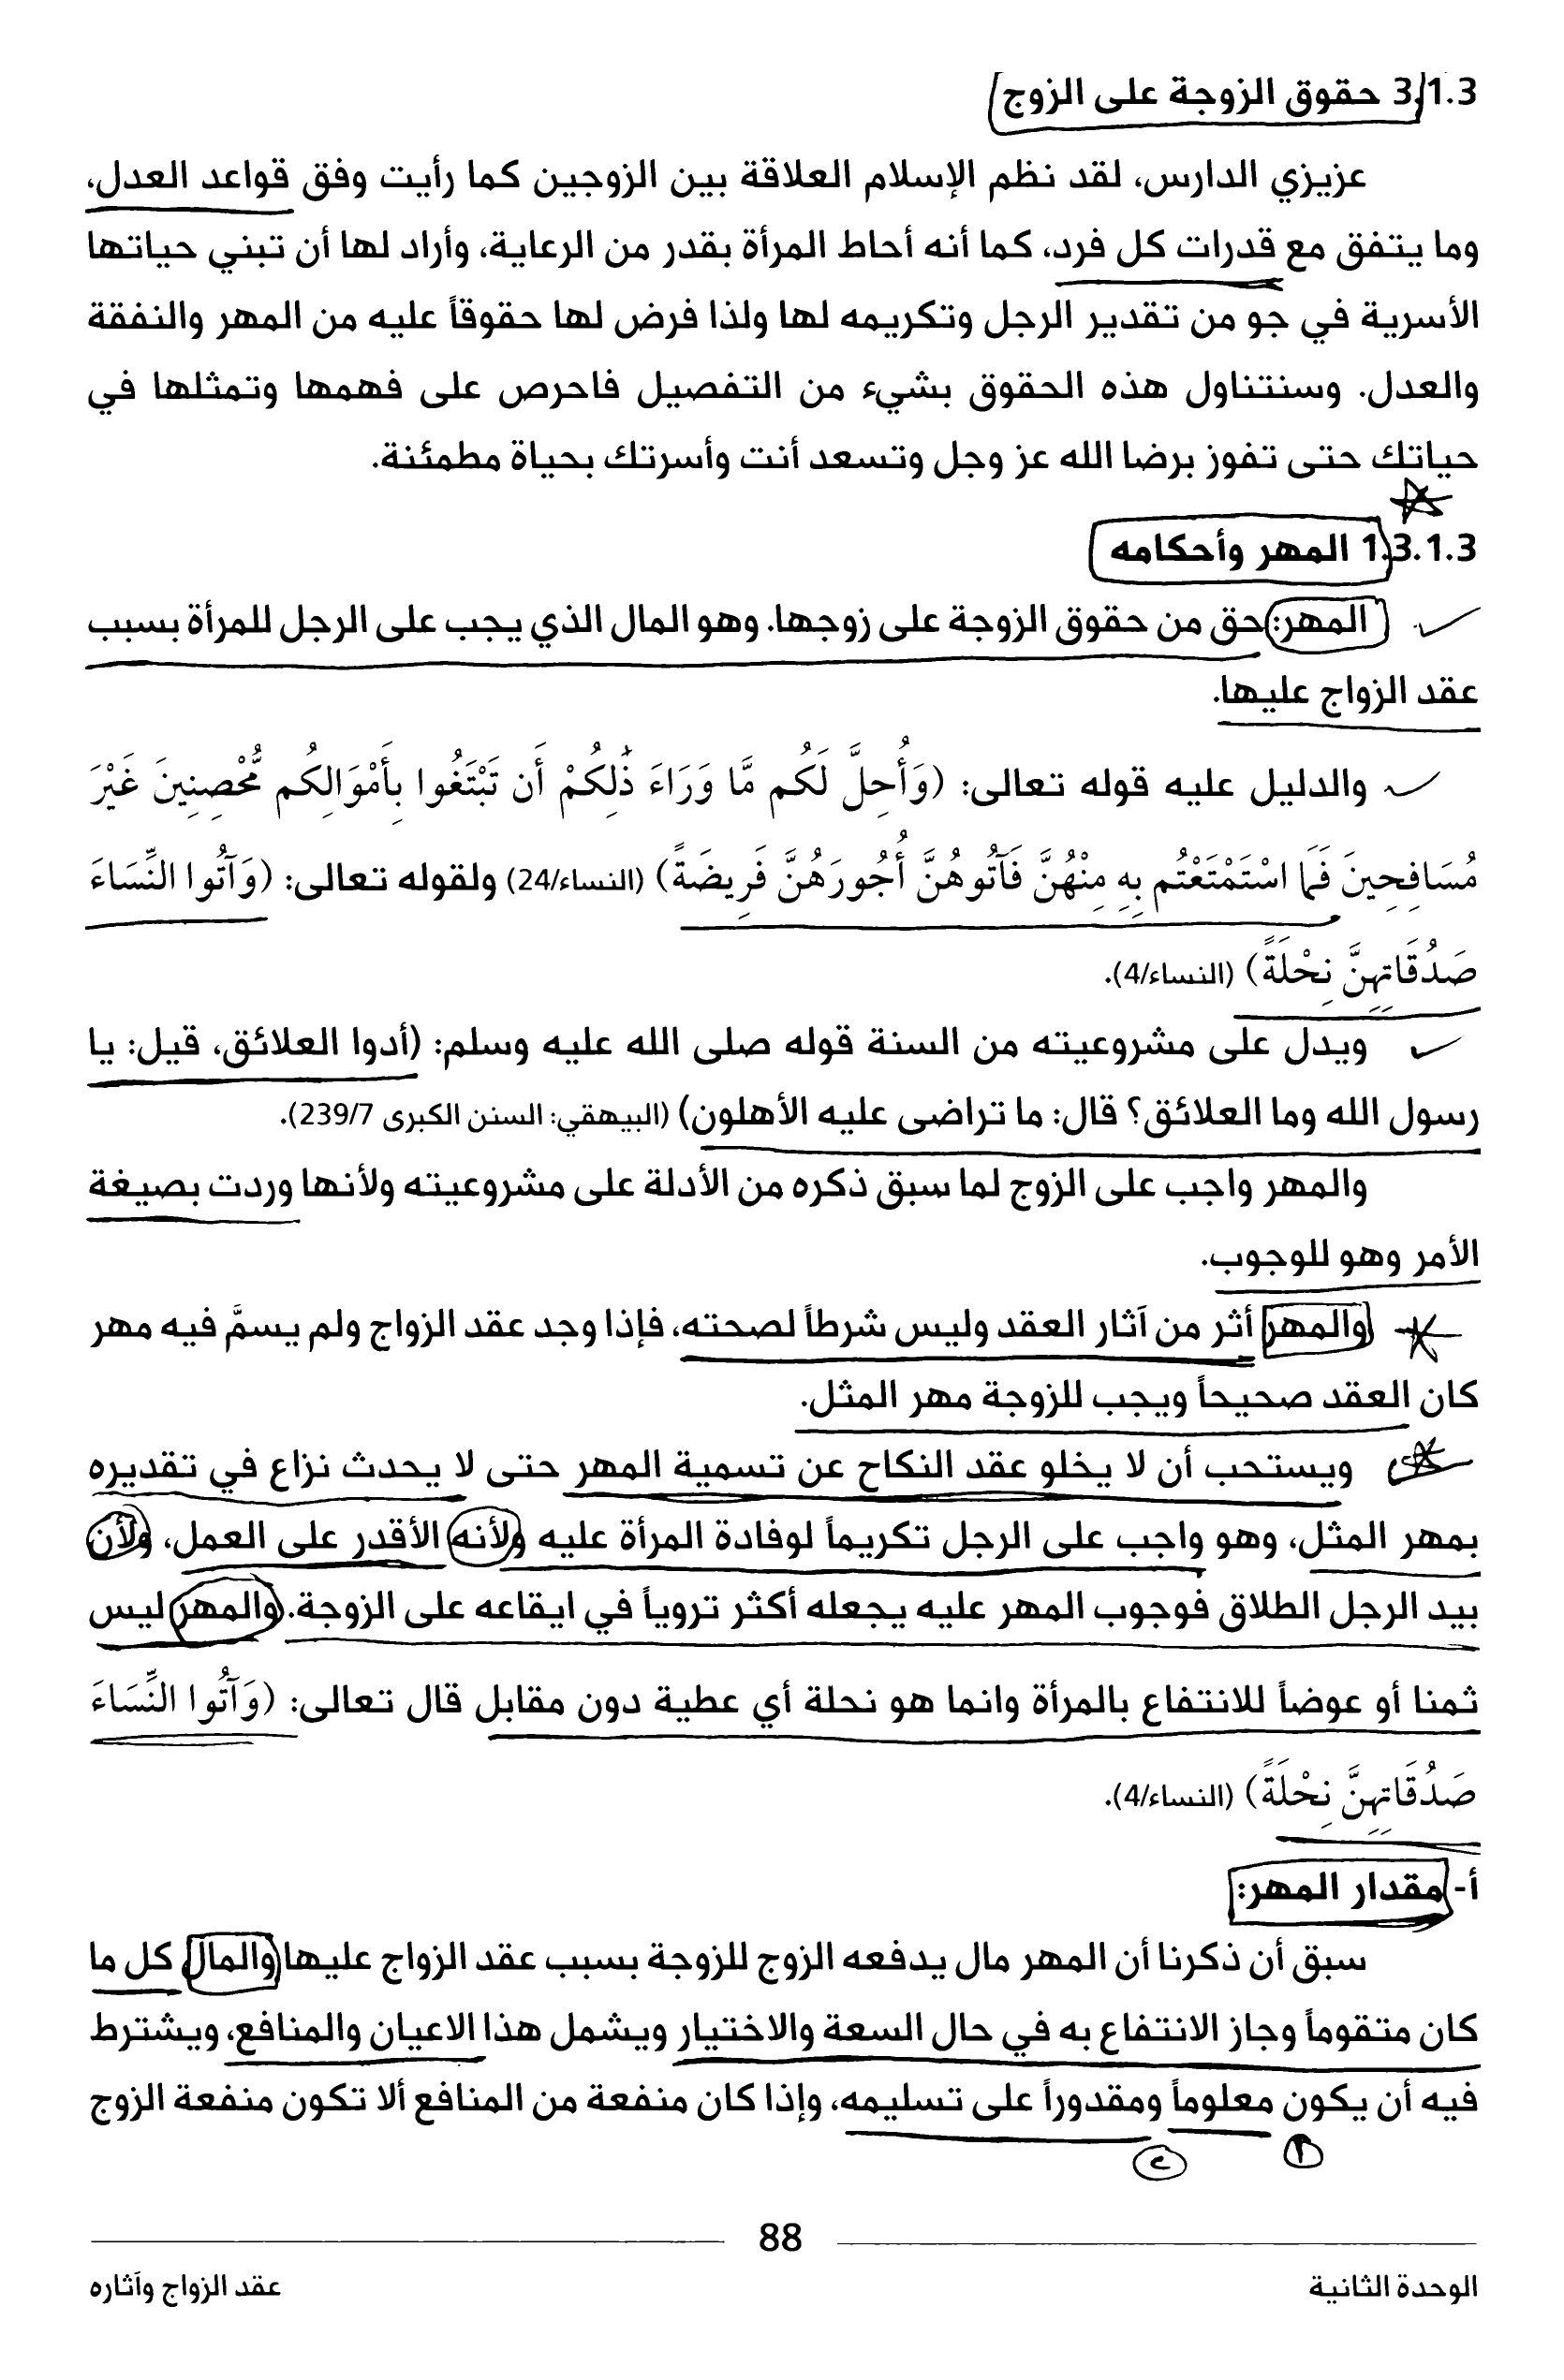 3.1.3 حقوق الزوجة على الزوج
عزيزي الدارس، لقد نظم الإسلام العلاقة بين الزوجين كما رأيت وفق قواعد العدل،
وما يتفق مع قدرات كل فرد، كما أنه أحاط المرأة بقدر من الرعاية، وأراد لها أن تبني حياتها
الأسرية في جو من تقدير الرجل وتكريمه لها ولذا فرض لها حقوقاً عليه من المهر والنفقة
والعدل. وسنتناول هذه الحقوق بشيء من التفصيل فاحرص على فهمها وتمثلها في
حياتك حتى تفوز برضا الله عز وجل وتسعد أنت وأسرتك بحياة مطمئنة.
1.3.1.3 المهر وأحكامه
المهر: حق من حقوق الزوجة على زوجها. وهو المال الذي يجب على الرجل للمرأة بسبب
عقد الزواج عليها.
والدليل عليه قوله تعالى: (وَأُحِلَّ لَكُم مَّا وَرَاءَ ذَٰلِكُمْ أَن تَبْتَغُوا بِأَمْوَالِكُم مُّحْصِنِينَ غَيْرَ
مُسَافِحِينَ فَمَا اسْتَمْتَعْتُم بِهِ مِنْهُنَّ فَآتُوهُنَّ أُجُورَهُنَّ فَرِيضَةً) (النساء/24) ولقوله تعالى: (وَآتُوا النِّسَاءَ
صَدُقَاتِهِنَّ نِحْلَةً) (النساء/4).
ويدل على مشروعيته من السنة قوله صلى الله عليه وسلم: (أدوا العلائق، قيل: يا
رسول الله وما العلائق؟ قال: ما تراضى عليه الأهلون) (البيهقي: السنن الكبرى 239/7).
والمهر واجب على الزوج لما سبق ذكره من الأدلة على مشروعيته ولأنها وردت بصيغة
الأمر وهو للوجوب.
والمهر أثر من آثار العقد وليس شرطاً لصحته، فإذا وجد عقد الزواج ولم يسمَّ فيه مهر
كان العقد صحيحاً ويجب للزوجة مهر المثل.
ويستحب أن لا يخلو عقد النكاح عن تسمية المهر حتى لا يحدث نزاع في تقديره
بمهر المثل، وهو واجب على الرجل تكريماً لوفادة المرأة عليه ولأنه الأقدر على العمل، ولأن
بيد الرجل الطلاق فوجوب المهر عليه يجعله أكثر تروياً في ايقاعه على الزوجة. والمهر ليس
ثمنا أو عوضاً للانتفاع بالمرأة وانما هو نحلة أي عطية دون مقابل قال تعالى: (وَآتُوا النِّسَاءَ
صَدُقَاتِهِنَّ نِحْلَةً) (النساء/4).
أ- مقدار المهر:
سبق أن ذكرنا أن المهر مال يدفعه الزوج للزوجة بسبب عقد الزواج عليها والمال كل ما
كان متقوماً وجاز الانتفاع به في حال السعة والاختيار ويشمل هذا الاعيان والمنافع، ويشترط
فيه أن يكون معلوماً ومقدوراً على تسليمه، وإذا كان منفعة من المنافع ألا تكون منفعة الزوج
١ ٢
88
الوحدة الثانية عقد الزواج وآثاره